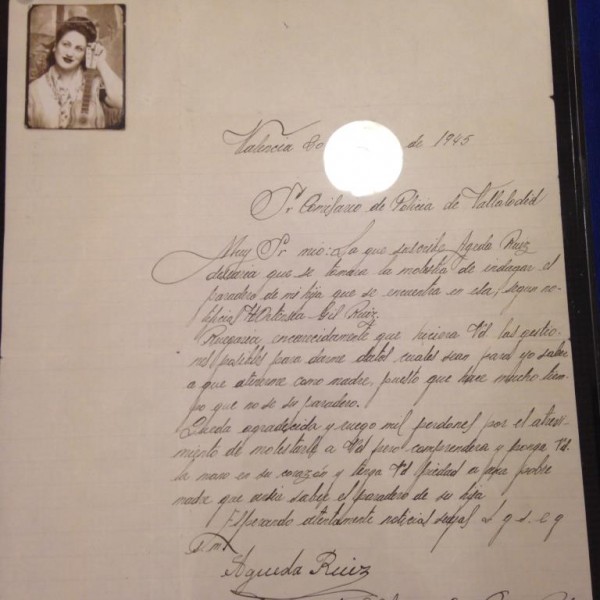 Valencia 20 de 1945
Sr Comisario de Policia de Valladolid
Muy Sr mio: La que suscribe Ageda Ruiz
desearia que se tomara la molestia de indagar el
paradero de mi hija que se encuentra en esta, segun no-
ticias Hortensia Gil Ruiz.
encarecidamente que hiciera Vd. las gestio-
nes posibles para darme datos cuales sean para yo saber
a que atenerme como madre, puesto que hace mucho tiem-
po que no se su paradero.
Queda agradecida y ruego mil perdones por el atrevi-
miento de molestarle a Vd pero comprendera y ponga Vd.
la mano en su corazón y tenga Vd piedad a una pobre
madre que saber el paradero de su hija
Esperando atentamente noticias suyas
Agueda Ruiz